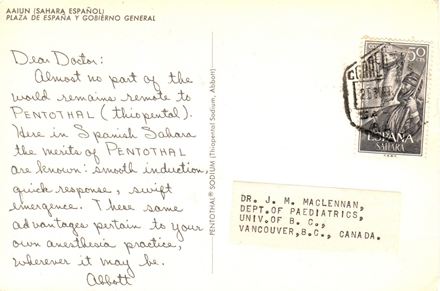 AAIUN (SAHARA ESPAÑOL)
PLAZA DE ESPAÑA Y GOBIERNO GENERAL
Dear Doctor:
Almost no part of the
world remains remote to
PENTOTHAL (thiopental).
Here in Spanish Sahara
the merits of PENTOTHAL
are known: smooth induction,
quick response, swift
emergence. These same
advantages pertain to your
own anesthesia practice,
wherever it may be.
Abbott
PENTOTHAL® SODIUM (Thiopental Sodium, Abbott)
CORREO
50
ESPAÑA
SAHARA
DR. J. M. MACLENNAN,
DEPT. OF PAEDIATRICS,
UNIV. OF B. C.,
VANCOUVER, B.C., CANADA.